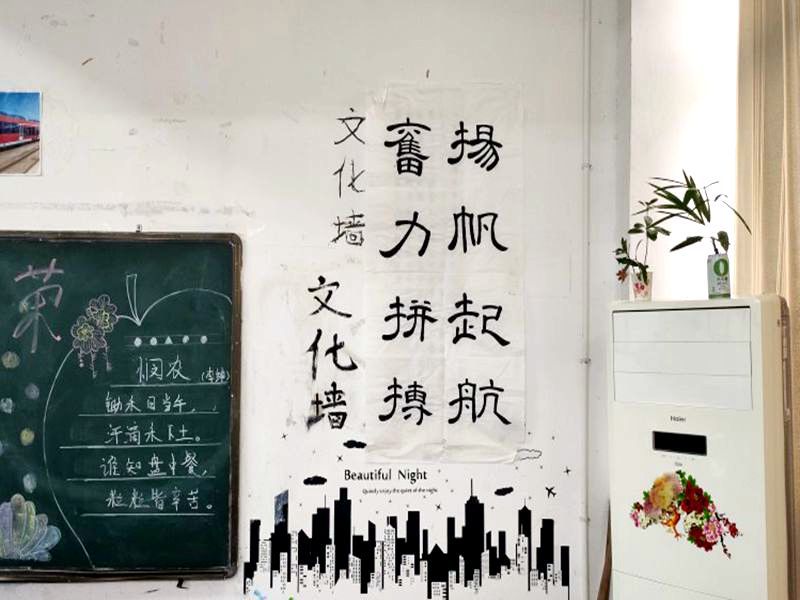 荣
悯农 (李绅)
锄禾日当午,
汗滴禾下土。
谁知盘中餐,
粒粒皆辛苦。
揚帆起航
奮力拼搏
文化墙
文化墙
Beautiful Night
Quietly enjoy the quiet of the night
Haier